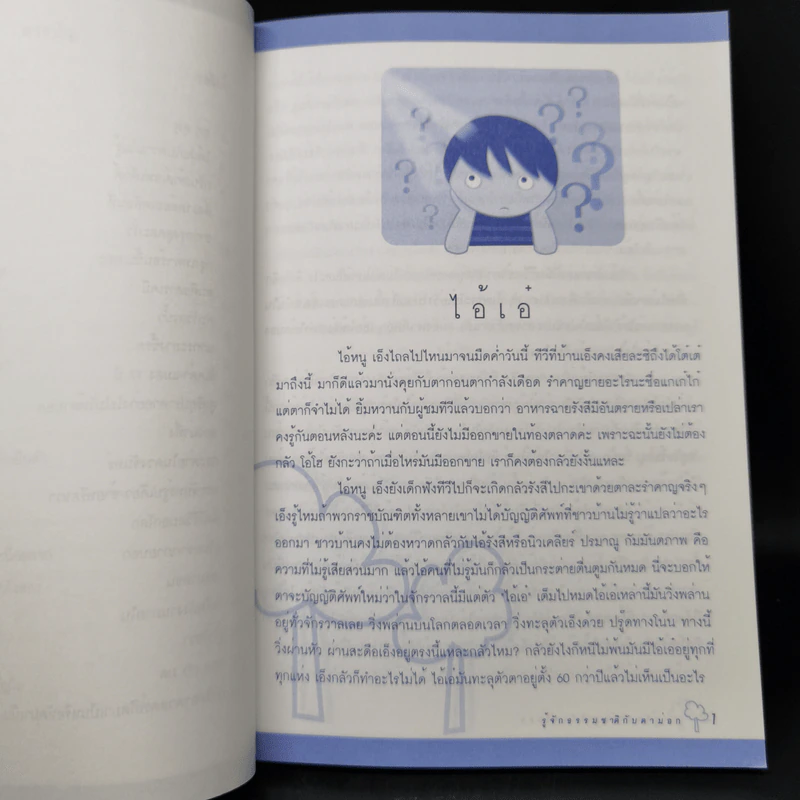 ไอ้เอ๋
ไอ้หนู เอ็งไถลไปไหนมาจนมืดค่ำวันนี้ ทีวีที่บ้านเอ็งคงเสียละซิถึงได้โต๋เต๋
มาถึงนี้ มาก็ดีแล้วมานั่งคุยกับตาก่อนตากำลังเดือด รำคาญยายอะไรนะชื่อแกเก๋ไก๋
แต่ตาก็จำไม่ได้ ยิ้มหวานกับผู้ชมทีวีแล้วบอกว่า อาหารฉายรังสีมีอันตรายหรือเปล่าเรา
คงรู้กันตอนหลังนะค่ะ แต่ตอนนี้ยังไม่มีออกขายในท้องตลาดค่ะ เพราะฉะนั้นยังไม่ต้อง
กลัว โอ้โฮ ยังกะว่าถ้าเมื่อไหร่มันมีออกขาย เราก็คงต้องกลัวยังงั้นแหละ
ไอ้หนู เอ็งยังเด็กฟังทีวีไปก็จะเกิดกลัวรังสีไปกะเขาด้วยตาละรำคาญจริงๆ
เอ็งรู้ไหมถ้าพวกราชบัณฑิตทั้งหลายเขาไม่ได้บัญญัติศัพท์ที่ชาวบ้านไม่รู้ว่าแปลว่าอะไร
ออกมา ชาวบ้านคงไม่ต้องหวาดกลัวกับไอ้รังสีหรือนิวเคลียร์ ปรมาณู กัมมันตภาพ คือ
ความที่ไม่รู้เสียส่วนมาก แล้วไอ้คนที่ไม่รู้มันก็กลัวเป็นกระต่ายตื่นตูมกันหมด นี่จะบอกให้
ตาจะบัญญัติศัพท์ใหม่ว่าในจักรวาลนี้มีแต่ตัว 'ไอ้เอ๋' เต็มไปหมดไอ้เอ๋เหล่านี้มันวิ่งพล่าน
อยู่ทั่วจักรวาลเลย วิ่งพล่านบนโลกตลอดเวลา วิ่งทะลุตัวเอ็งด้วย ปรู๊ดทางโน้น ทางนี้
วิ่งผ่านหัว ผ่านสะดือเอ็งอยู่ตรงนี้แหละกลัวไหม? กลัวยังไงก็หนีไม่พ้นมันมีไอ้เอ๋อยู่ทุกที่
ทุกแห่ง เอ็งกลัวก็ทำอะไรไม่ได้ ไอ้เอ๋มันทะลุตัวตาอยู่ตั้ง 60 กว่าปีแล้วไม่เห็นเป็นอะไร
รู้จักธรรมชาติกับตาม่อก 1